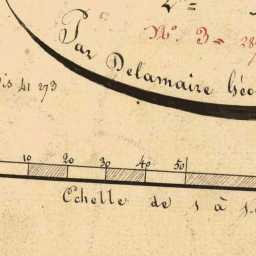 N°. 3=
Par Delamaire Géo
41 273
10 20 30 40 50
Echelle de 1 à